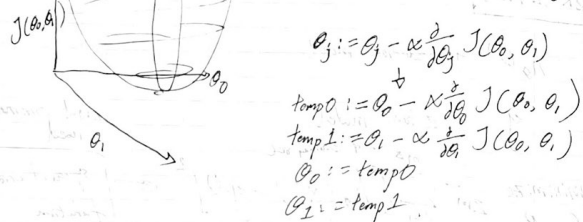 J(θ₀,θ₁)
θ₀
θ₁
θⱼ := θⱼ - α ∂/∂θⱼ J(θ₀, θ₁)
temp0 := θ₀ - α ∂/∂θ₀ J(θ₀, θ₁)
temp1 := θ₁ - α ∂/∂θ₁ J(θ₀, θ₁)
θ₀ := temp0
θ₁ := temp1